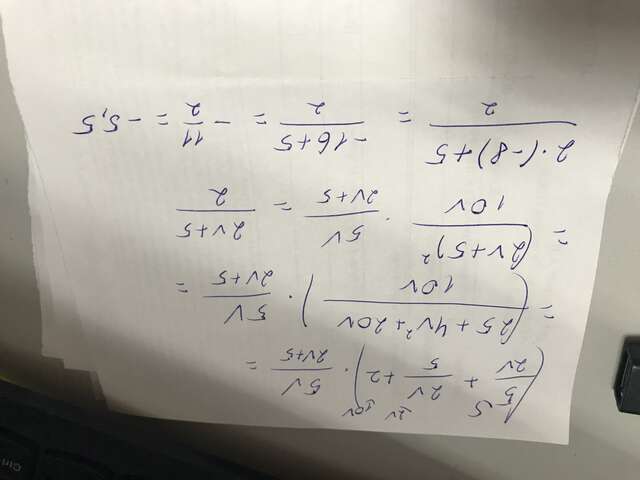 (5/2v + 2v/5 + 2) · 5v/2v+5 =
5 2v 10v
= (25 + 4v² + 20v / 10v) · 5v/2v+5 =
= (2v+5)²/10v · 5v/2v+5 = 2v+5/2
2·(-8)+5/2 = -16+5/2 = -11/2 = -5,5
Ctrl